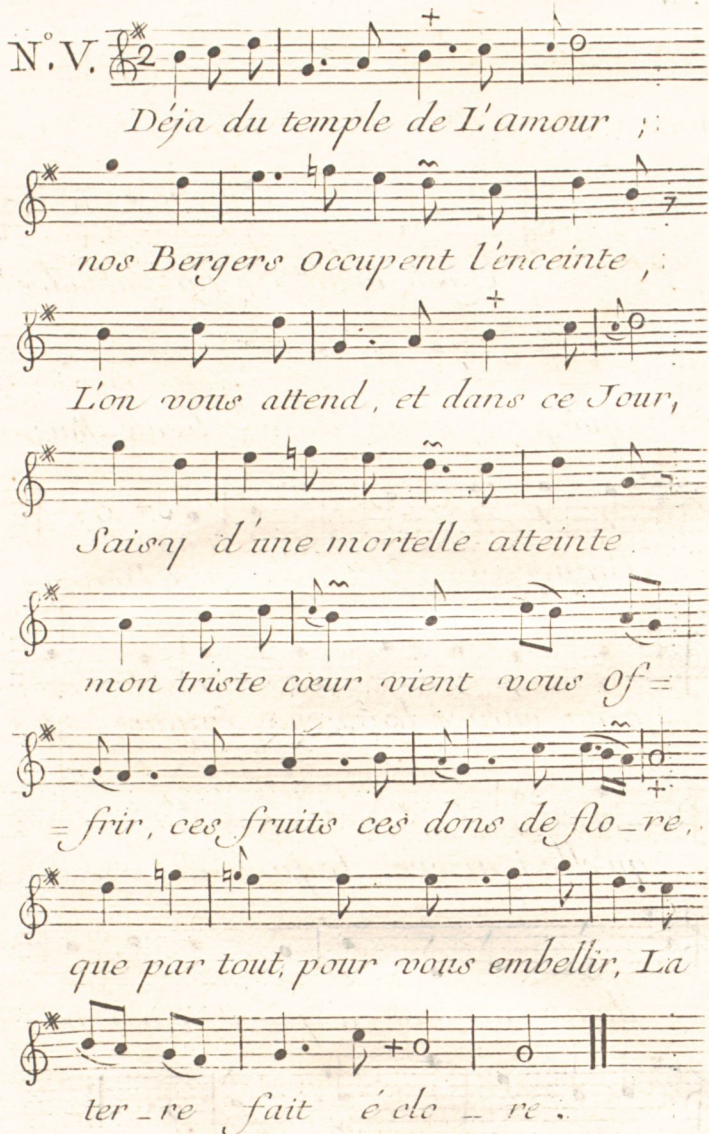 N.° V. 2
Déja du temple de L'amour ;
nos Bergers Occupent l'enceinte ,
L'on vous attend, et dans ce Jour,
Saisy d'une mortelle atteinte
mon triste cœur vient vous Of=
=frir, ces fruits ces dons de flo_re,
que par tout, pour vous embellir, La
ter_re fait é clo _ re .